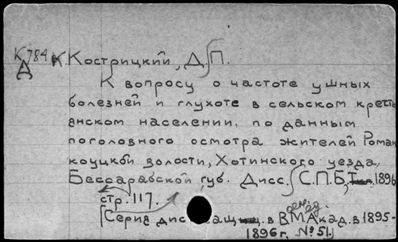 К784
Д
К Кострицкий, Д. П.
К вопросу о частоте ушных
болезней и глухоте в сельском кресть
янском населении, по данным
поголовного осмотра жителей Роман
коуцкой волости, Хотинского уезда,
Бессарабской губ. Дисс. С.П.Б, 1896
стр. 117.
Серия дис ащ. в В.М.Акад. в 1895-
1896г. №51